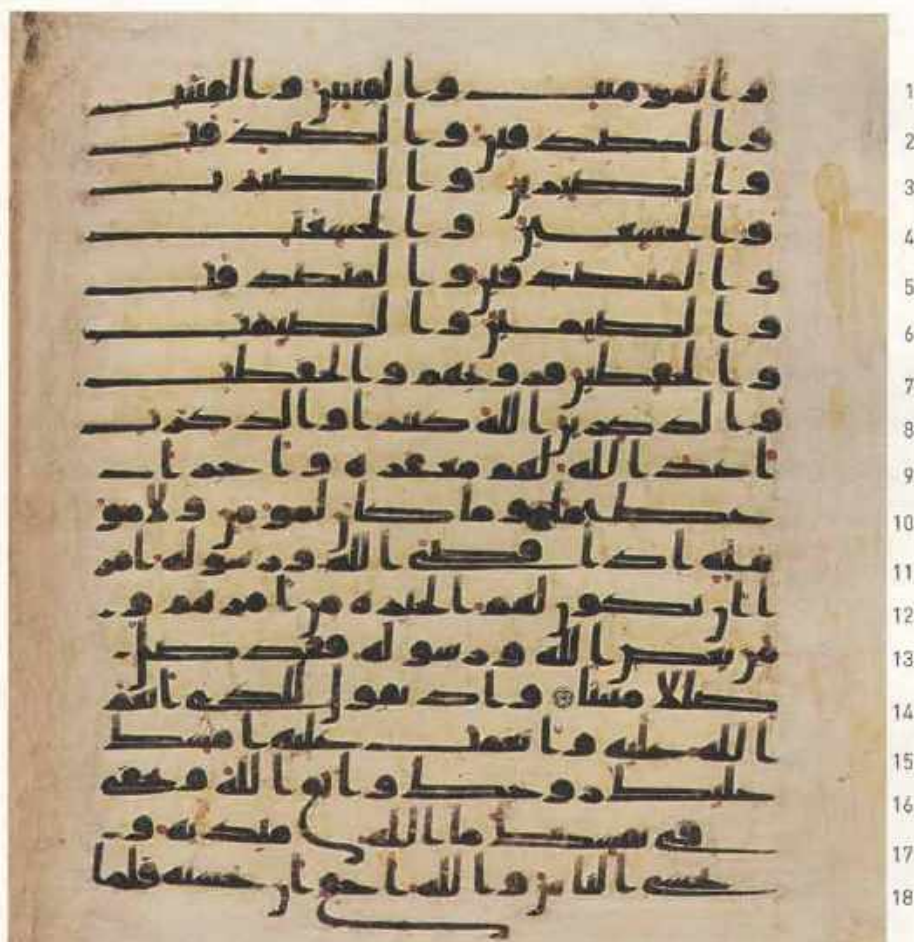 والمومنت والقنتين والقنتت 1
والصدقين والصدقت 2
والصبرين والصبرت 3
والخشعين والخشعت 4
والمتصدقين والمتصدقت 5
والصيمين والصيمت 6
والحفظين فروجهم والحفظت 7
والذكرين الله كثيرا والذكرت 8
اعد الله لهم مغفرة واجرا 9
عظيما وما كان لمومن ولا مو 10
منة اذا قضى الله ورسوله امر 11
ا ان يكون لهم الخيرة من امرهم و 12
من يعص الله ورسوله فقد ضل 13
ضللا مبينا واذ تقول للذي انعم 14
الله عليه وانعمت عليه امسك 15
عليك زوجك واتق الله وتخفي 16
في نفسك ما الله مبديه و 17
تخشى الناس والله احق ان تخشيه فلما 18